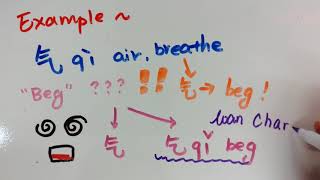 Example ~
气 qì air, breathe
"Beg" ??? !! 气 → beg!
loan char
气 乞 qǐ beg